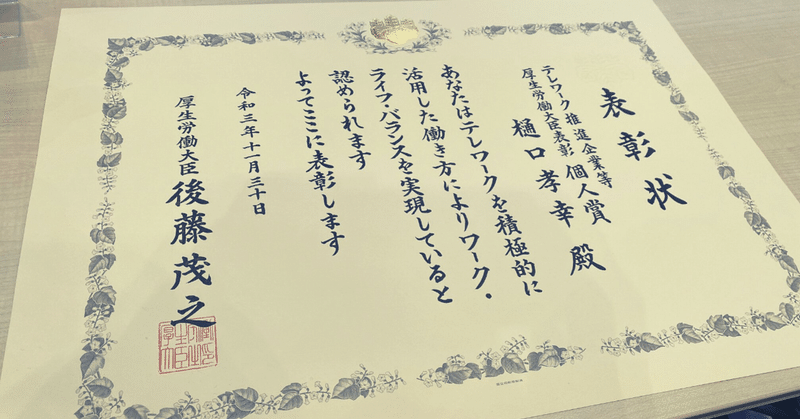 表彰状
テレワーク推進企業等
厚生労働大臣表彰 個人賞
樋口孝幸 殿
あなたはテレワークを積極的に
活用した働き方によりワーク・
ライフ・バランスを実現していると
認められます
よってここに表彰します
令和三年十一月三十日
厚生労働大臣 後藤茂之